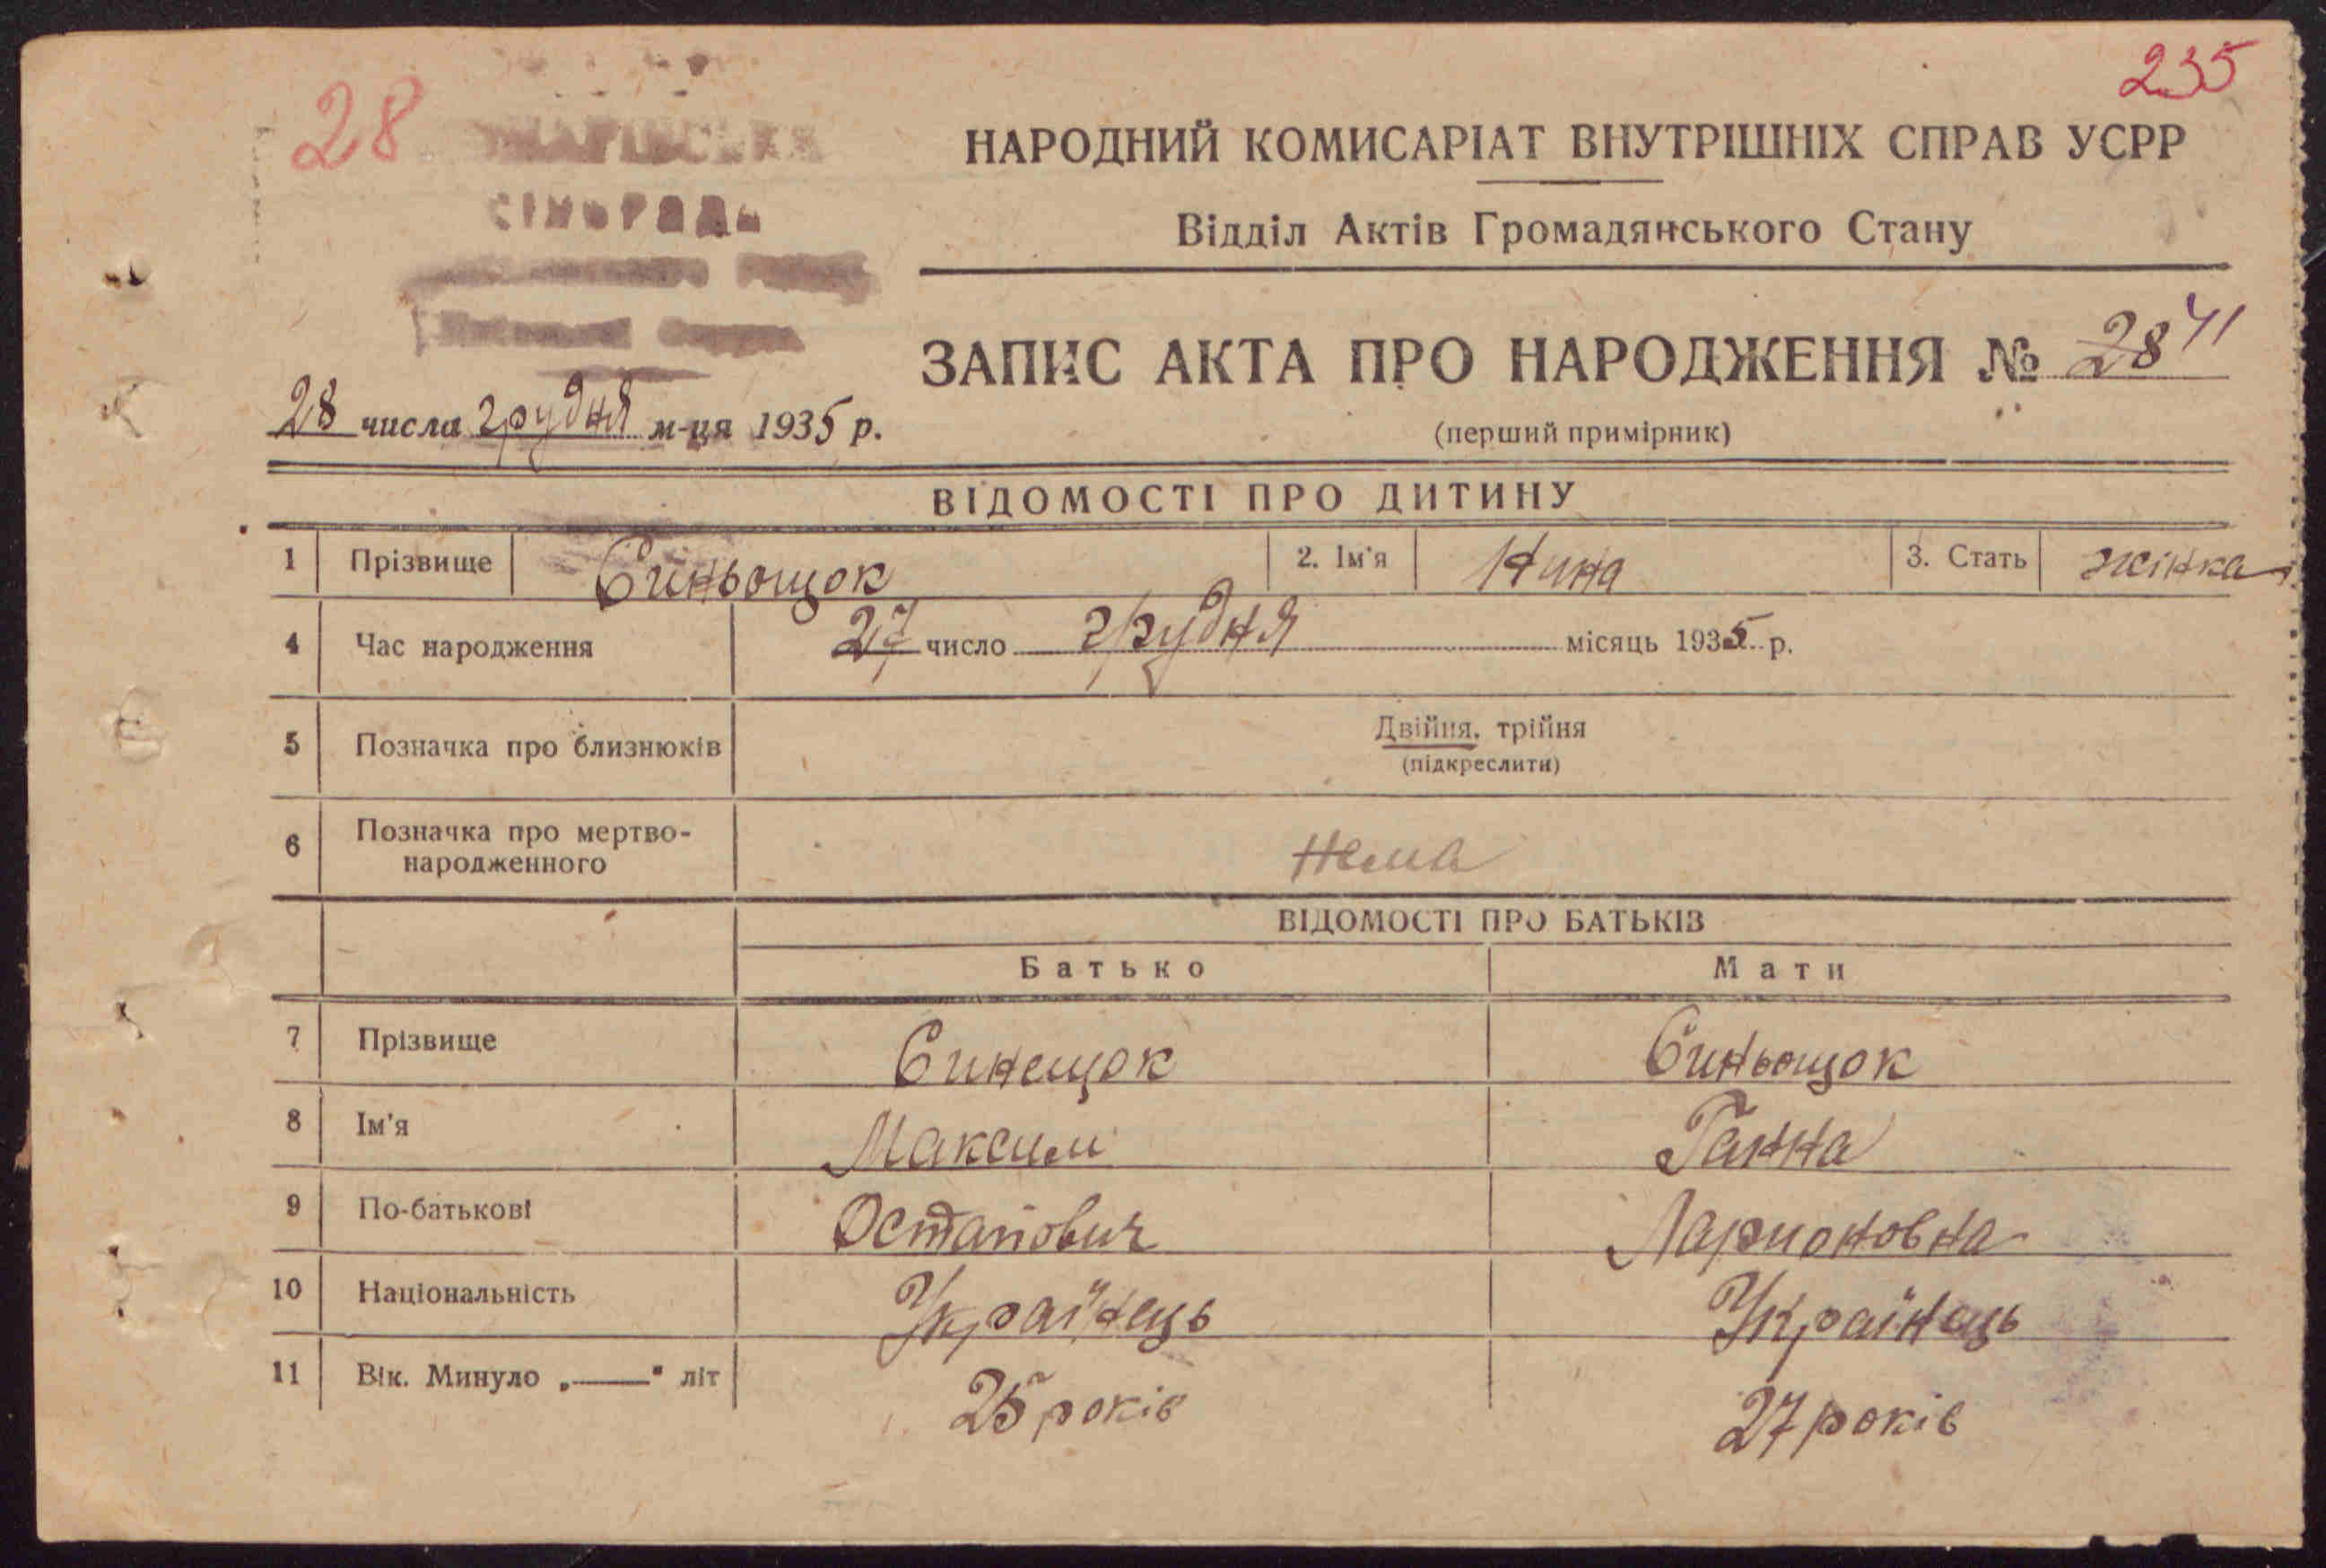 235
28
НАРОДНИЙ КОМИСАРІАТ ВНУТРІШНІХ СПРАВ УСРР
СІЛЬРАДА
Відділ Актів Громадянського Стану
ЗАПИС АКТА ПРО НАРОДЖЕННЯ № 28 41
28 числа грудня м-ця 1935 р.
(перший примірник)
ВІДОМОСТІ ПРО ДИТИНУ
1 Прізвище Синьощок 2. Ім'я Нина 3. Стать жінка
4 Час народження 27 число грудня місяць 1935 р.
5 Позначка про близнюків Двійня, трійня
(підкреслити)
6 Позначка про мертво-
народженного нема
ВІДОМОСТІ ПРО БАТЬКІВ
Батько Мати
7 Прізвище Синещок Синьощок
8 Ім'я Максим Ганна
9 По-батькові Остапович Ларионовна
10 Національність Українець Українець
11 Вік. Минуло „——" літ 25 років 27 років